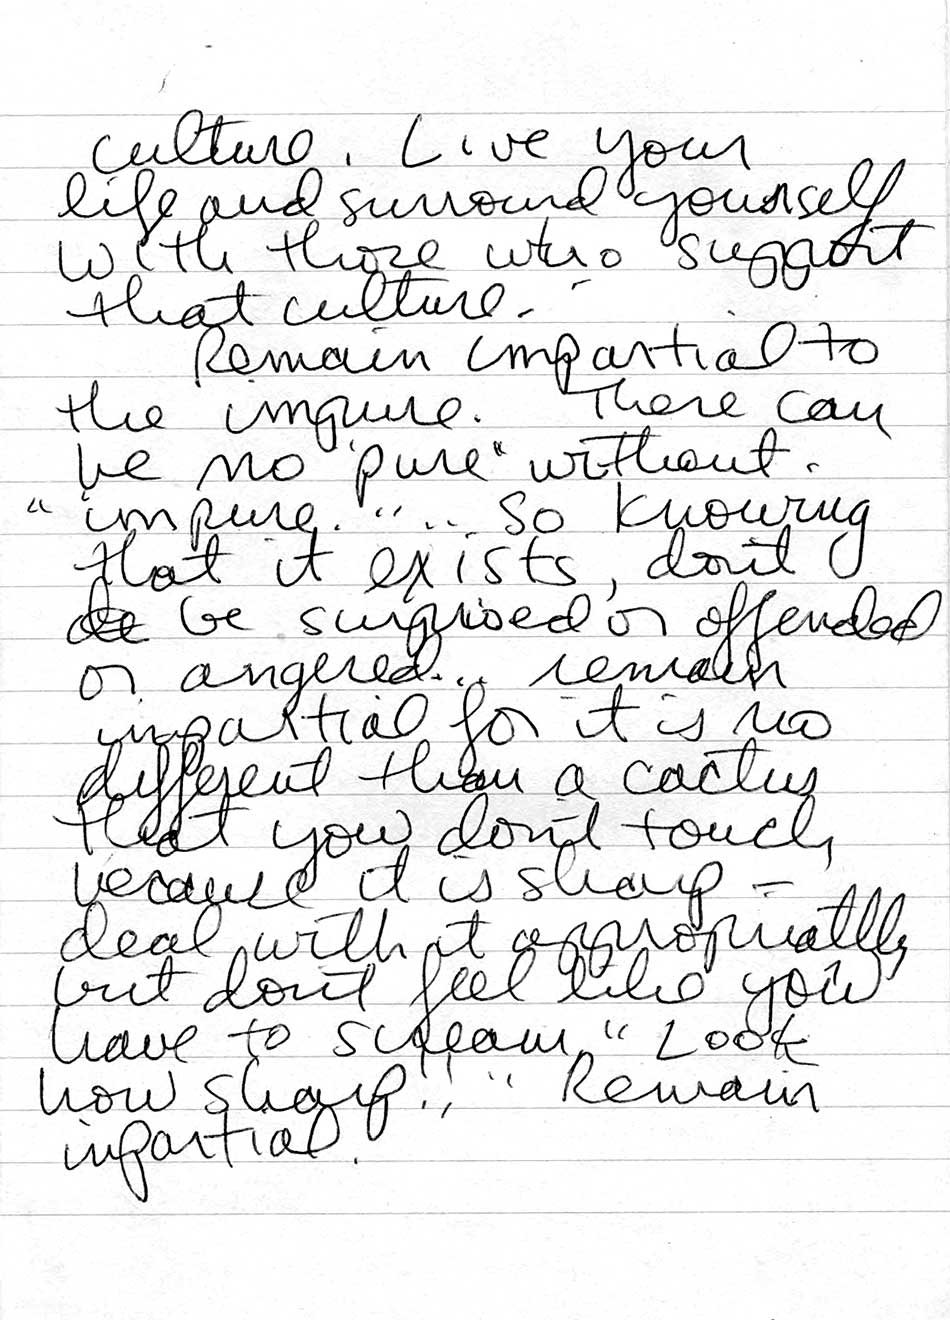 culture. Live your
life and surround yourself
with those who support
that culture.
Remain impartial to
the impure. There can
be no "pure" without.
"impure." .. So knowing
that it exists, don't
be surprised or offended
or angered... remain
impartial for it is no
different than a cactus
that you don't touch
because it is sharp -
deal with it appropriatlly
but don't feel like you
have to scream "Look
how sharp!!" Remain
impartial.